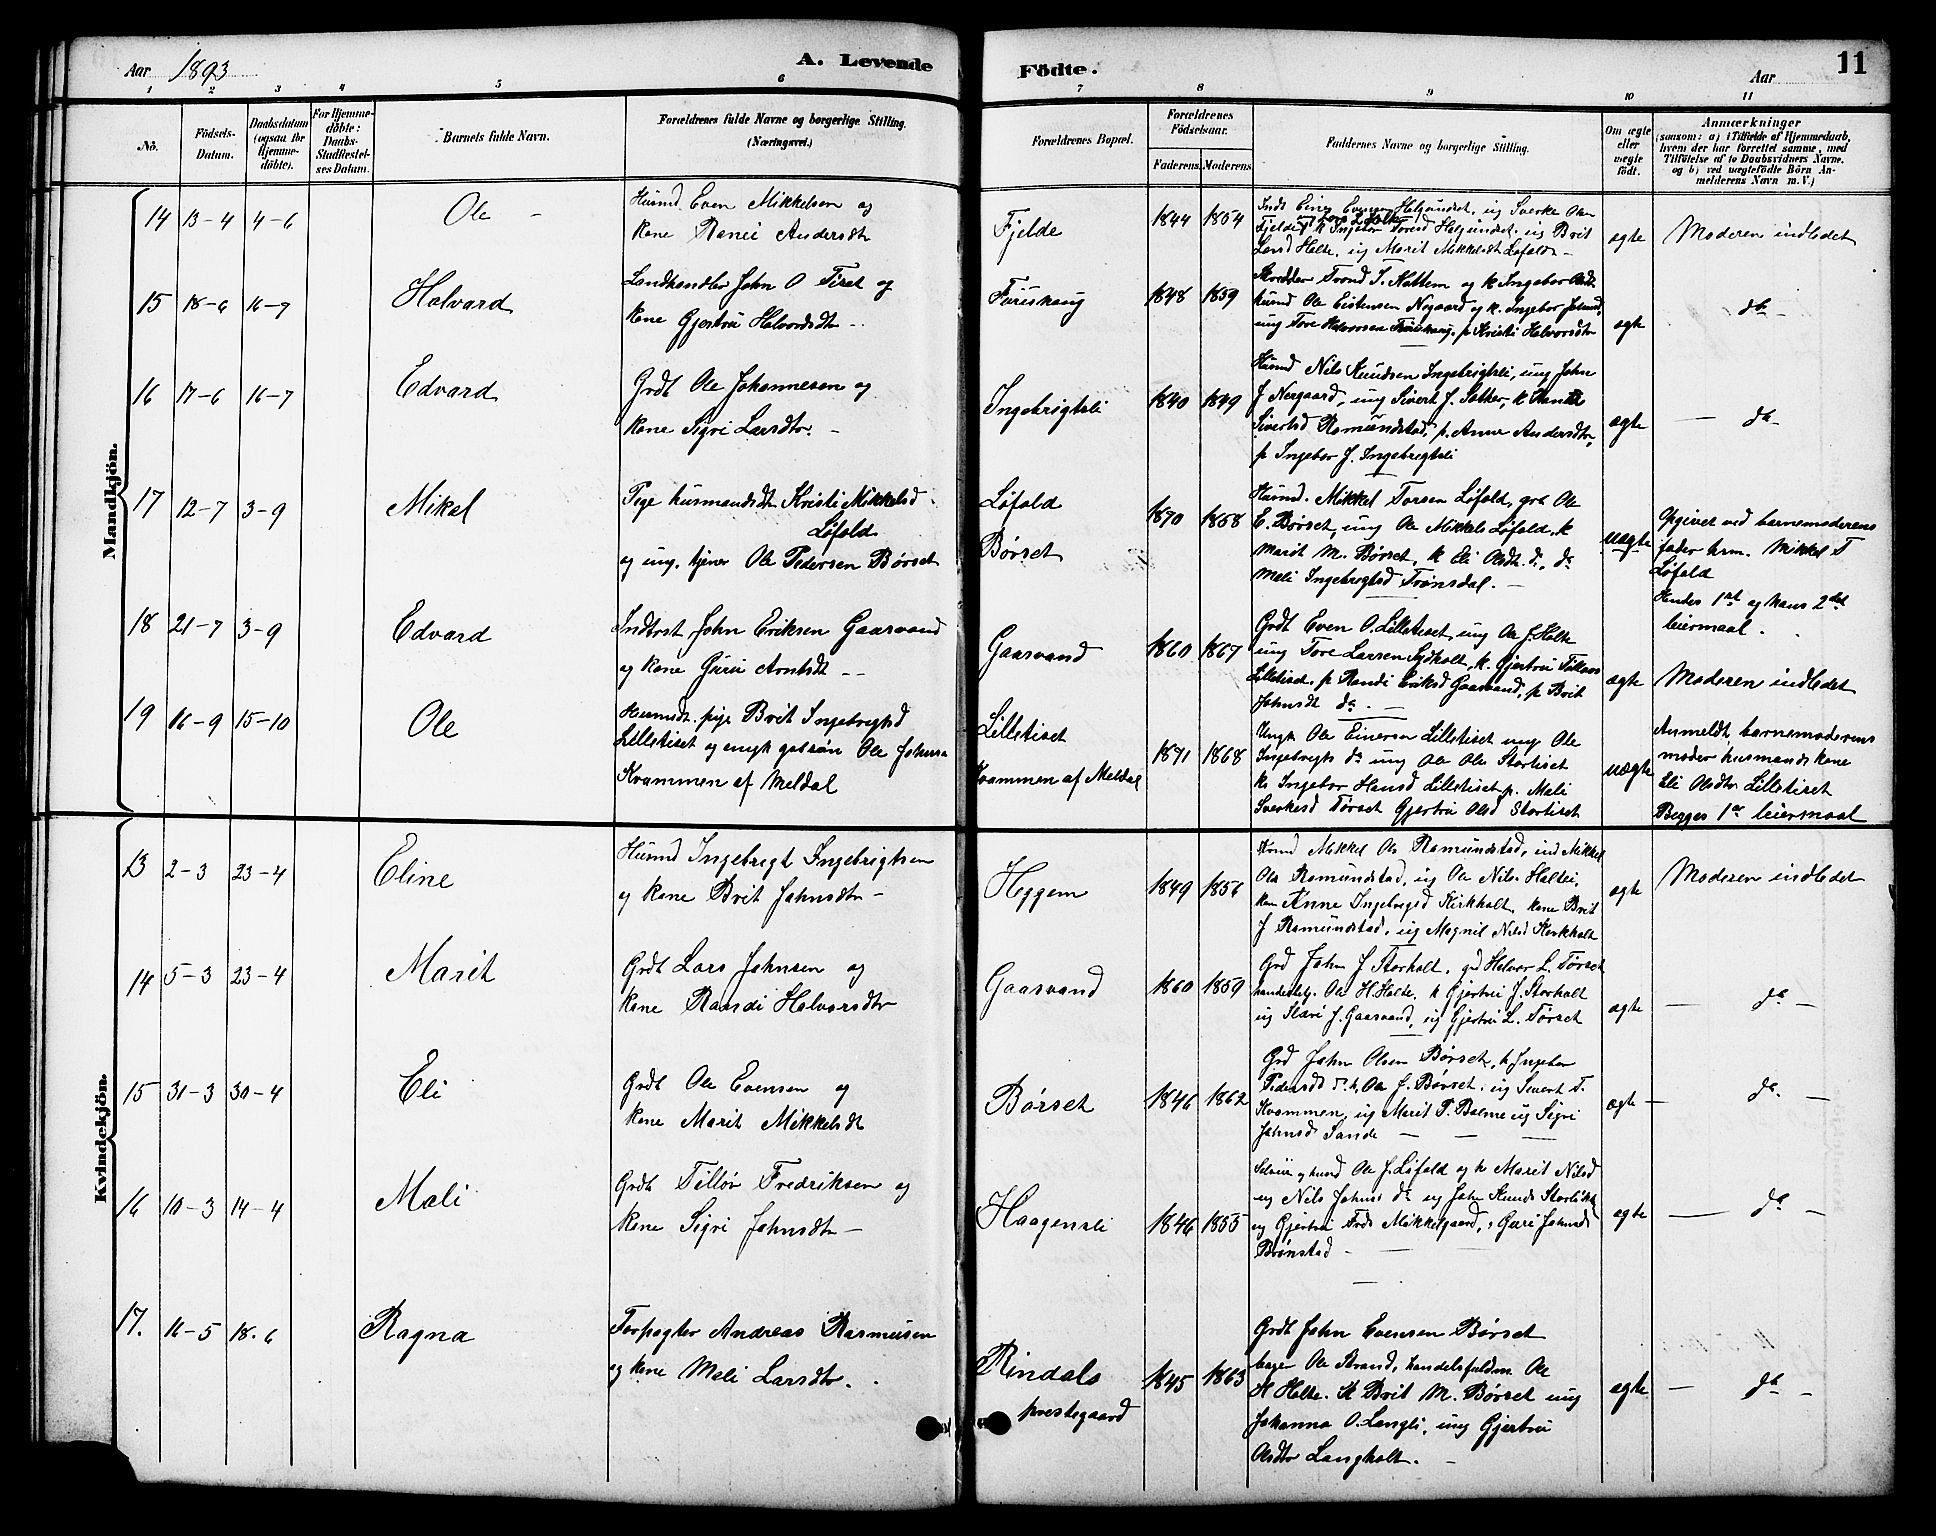 Aar 1893
A. Levende
Födte.
Aar
11
1 2 3 4 5 6 7 8 9 10 11
No.
Födsels-
Datum.
Daabsdatum
(ogsaa for
Hjemme-
döbte).
For Hjemme-
döbte:
Daabs-
Stadfæstel-
ses Datum.
Barnets fulde Navn.
Forældrenes fulde Navne og borgerlige Stilling.
(Næringsvei.)
Forældrenes Bopæl.
Forældrenes
Födselsaar.
Faderens. Moderens.
Faddernes Navne og borgerlige Stilling.
Om ægte
eller
uægte
födt.
Anmærkninger
(saasom: a) i Tilfælde af Hjemmedaab,
hvem der har forrettet samme, med
Tilföielse af to Daabsvidners Navne,
og b) ved uægtefödte Börn An-
melderens Navn m. V.)
Mandkjön.
14 13-4 4-6
Ole
Husmd. Even Mikkelsen og
kone Andersdtr
Fjelde
1844 1854
Fjelde k Ingebor Toresd Helgundset, ug Brit
Larsd Holte, ug Marit Mikkelsdt Løfald -
ægte
Moderen indledet
15 18-6 16-7
Halvard
Landhandler John O Tiset og
kone Gjertru Halvordsdtr -
Føriskaug
1848 1859
Skrædder Trond I. Kattem og k Ingebor Olsdtr
husmd Ole Eistensen Nergaard og k. Ingebor Johnsd,
ung Tore Halvorsen Føriskaug, p Kristi Halvorsdtr
ægte
do
16 17-6 16-7
Edvard
Grdb Ole Johannesen og
kone Sigri Larsdtr. -
Ingebrigtsli
1840 1849
Husmd Nils Knudsen Ingebrigtsli, ung John
J Nergaard, ung Sivert J. Sæther, k
Sivertsd Romundstad, p. Anne Andersdtr,
p Ingebor J. Ingebrigtsli
ægte
- do
17 12-7 3-9
Mikal
Pige husmandsdt Kristi Mikkelsd
Løfald
og ung. tjener Ole Pedersen Børset
Løfald
Børset
1870 1868
Husmd. Mikkel Torsen Løfald, grb Ole
E. Børset, ung Ole Mikkels Løfald, k
Marit M. Børset, k Eli Olsdt. do, do
Mali Ingebrigtsd Trønsdal. -
uægte
Opgivet ved barnemoderens
fader hrm. Mikkel T
Løfald
Hendes 1ste og hans 2det
leiermaal.
18 21-7 3-9
Edvard
Indtrst John Eriksen Gaasvand
og kone Guru Arntsdt -
Gaasvand
1860 1867
Grdb Even O. Lilletiset, ung Ole J. Holte
ung Tore Larsen Sydholt, k. Gjertru
Lilletiset, p Randi Eriksd Gaasvand, p Brit
Johnsdt do. -
ægte
Moderen indledet
19 16-9 15-10
Ole
Husmdt. pige Brit Ingebrigtsd
Lilletiset og ungk gbssøn Ole Johnsn
Kvammen af Meldal
Lilletiset
Kvammen af Meldal
1871 1868
Ungk Ole Einersen Lilletiset ung Ole
Ingebrigts do ung Ole Ols Stortiset
k Ingebor Hansd Lilletiset p. Mali
Sverkesd Tørset Gjertru Olsd Stortiset
uægte
Anmeldt barnemoderens
moder husmands kone
Eli Olsdtr Lilletiset
Begges 1ste leiermaal
Kvindekjön.
13 2-3 23-4
Eline
Husmd Ingebrigt Ingebrigtsen
og kone Brit Johnsdtr -
Heggem
1849 1856
Husmd Mikkel Ols Romundstad, ind Mikkel
Ols Romundstad, ug Ole Nils. Haltli,
kon Anne Ingebrigtsd Kirkholt, kone Brit
J Romundstad, ug Magnil Nilsd Kirkholt
ægte
Moderen indledet
14 5-3 23-4
Marit
Grdb Lars Johnsen og
kone Randi Halvorsdtr
Gaasvand
1860 1859
Grd John J Storholt, grd Halvor L. Tørset
handelsbetj. Ole H. Holte, k Gjertru J. Storholt
ug J. Gaasvand, ug Gjertru L. Tørset
ægte
- do -
15 30-3 30-4
Eli
Grdb Ole Evensen og
kone Marit Mikkelsdt
Børset
1846 1862
Grd John Olsen Børset, k Ingebor
Pedersdt do k, Ole J. Børset, ug Sivert T.
Kvammen, ug Marit P. Bolme ug Sigri
Johnsdt Sande -
ægte
- do -
16 10-3 14-4
Mali
Grdb Tillor Fredriksen og
kone Sigri Johnsdtr -
Haagensli
1846 1855
Selveier og husmd Ole J. Løfald og k Marit Nilsd
ug Nils Johns do ug John Knuds Storlikk
ug Gjertru Mikkelgaard, Guri Johnsd
Brønstad -
ægte
- do -
17. 16-5 18-6
Ragna
Forpagter Andreas Rasmusen
og kone Mali Larsdtr.
Rindals
prestegaard
1845 1863
Grdb John Evensen Børset
bager Ole Strand, handelsfuldm. Ole
H Holte. K Brit M. Børset ung
Johanna O. Langli, ung Gjertru
Olsdtr Langholt. -
ægte
- do -